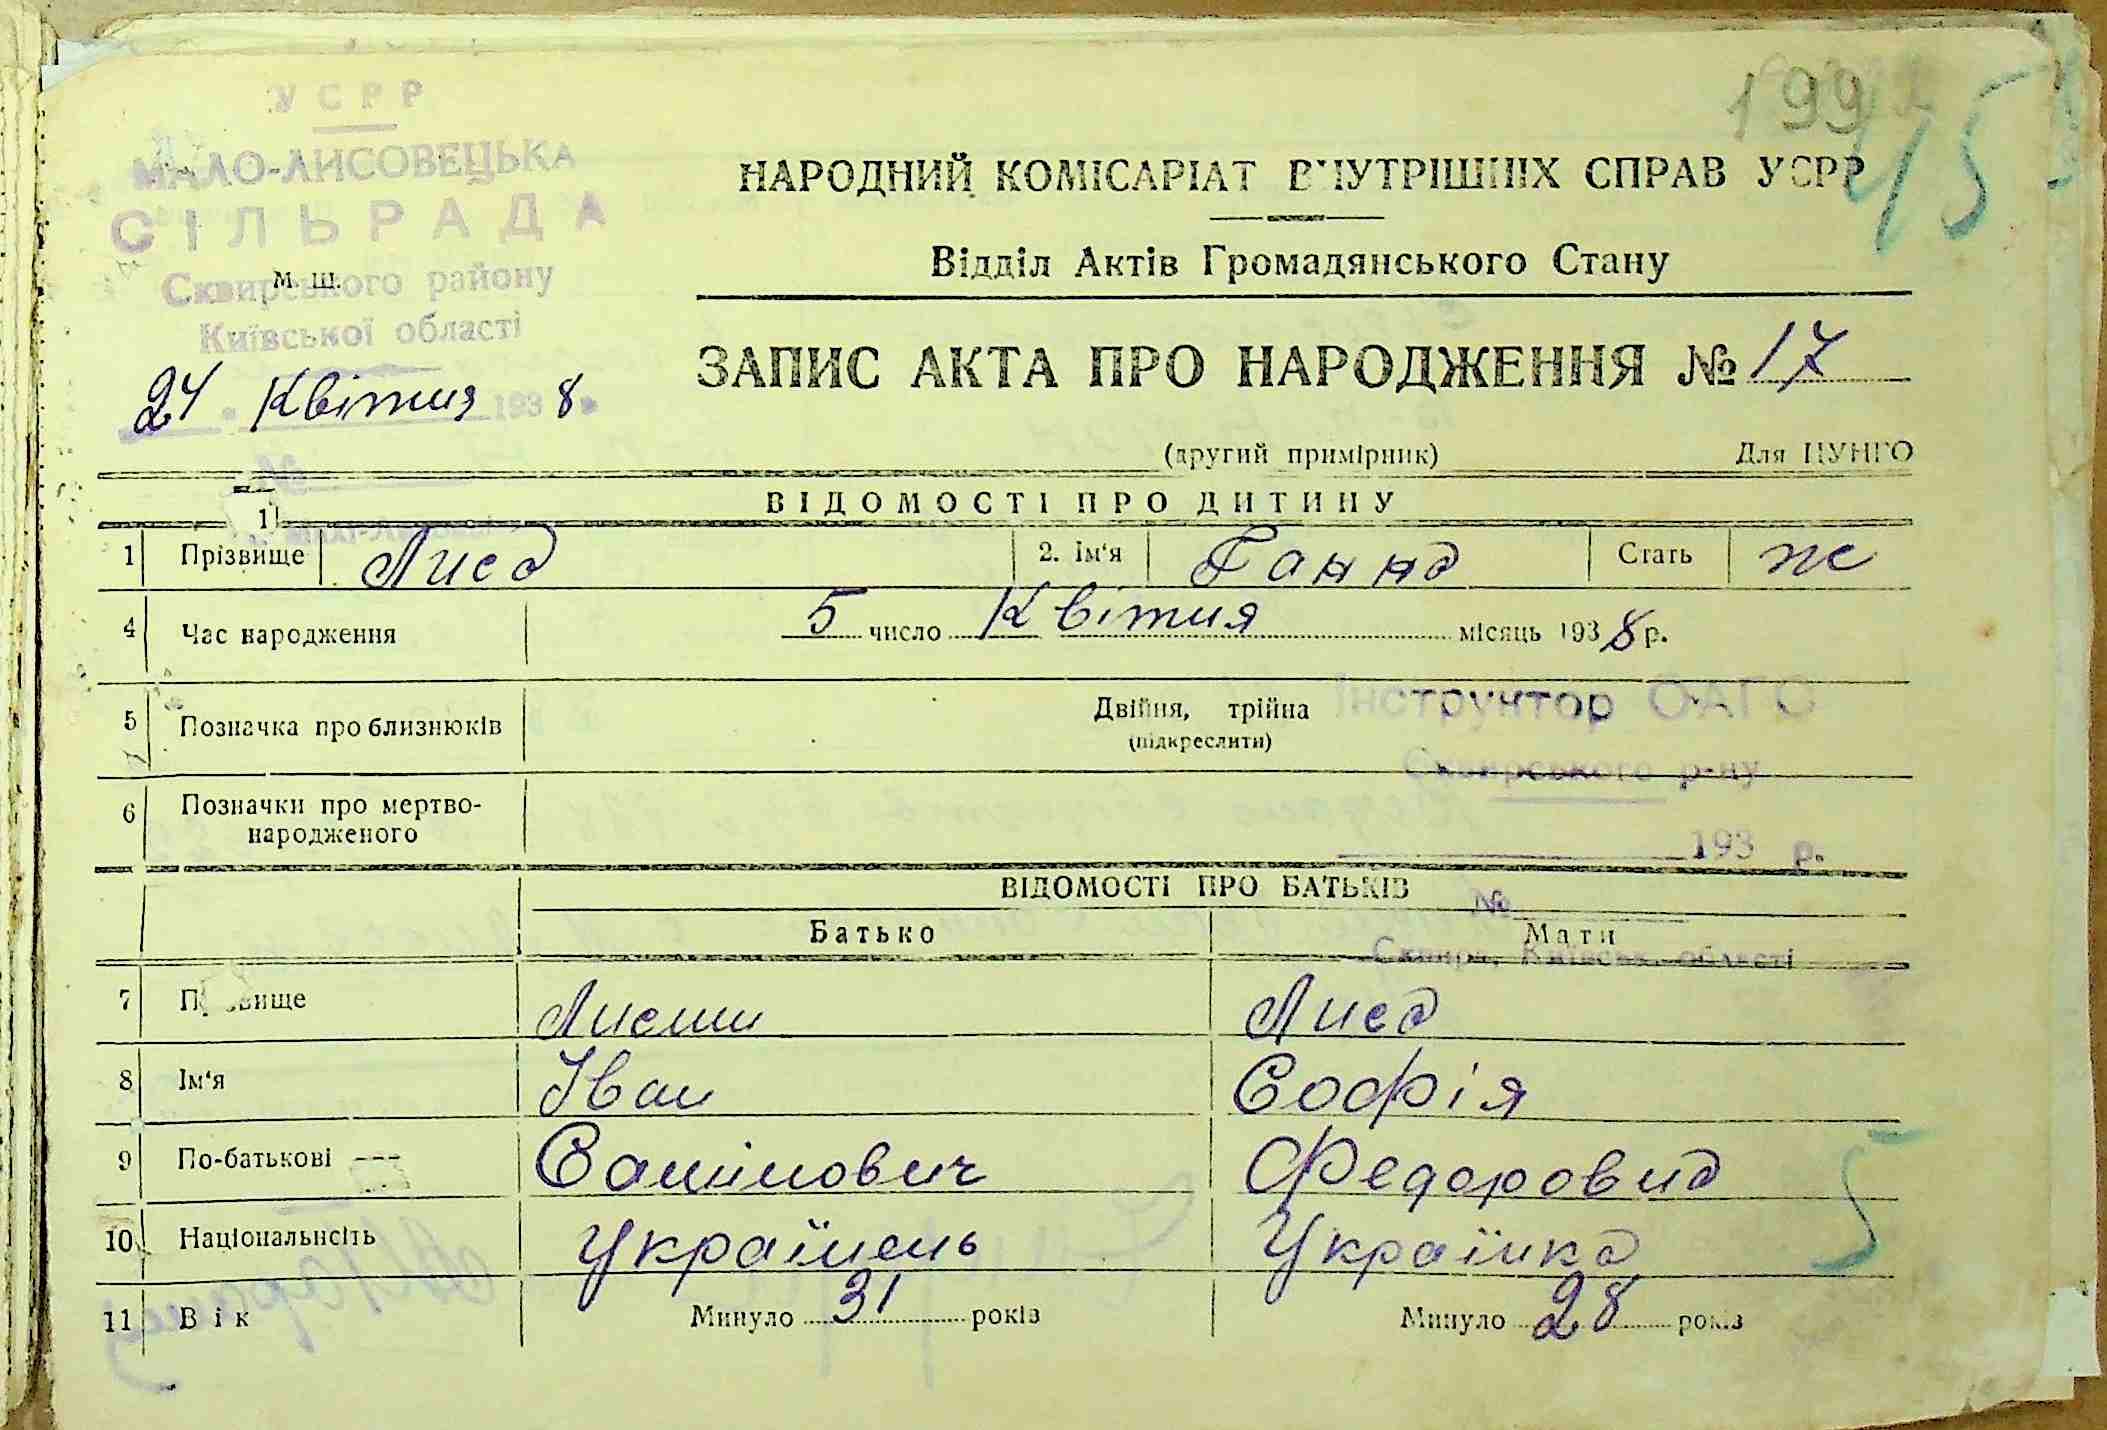 УСРР
199
45
МАЛО-ЛИСОВЕЦЬКА
СІЛЬРАДА
М. Ш.
Сквирського району
Київської області
24 Квітня 1938
№
НАРОДНИЙ КОМІСАРІАТ ВНУТРІШНІХ СПРАВ УСРР
Відділ Актів Громадянського Стану
ЗАПИС АКТА ПРО НАРОДЖЕННЯ № 17
(другий примірник) Для ЦУНГО
ВІДОМОСТІ ПРО ДИТИНУ
1 Прізвище Лиса 2. Ім'я Ганна Стать ж
4 Час народження 5 число Квітня місяць 1938 р.
5 Позначка про близнюків Двійня, трійна
(підкреслити)
Інструктор ОАГС
Сквирського р-ну
6 Позначки про мертво-
народженого
193 р.
№
Сквира, Київськ. області
ВІДОМОСТІ ПРО БАТЬКІВ
Батько Мати
7 Прізвище Лиса
8 Ім'я Іван Софія
9 По-батькові Федоровна
10 Національність Українець Українка
5
11 Вік Минуло 31 років Минуло 28 років